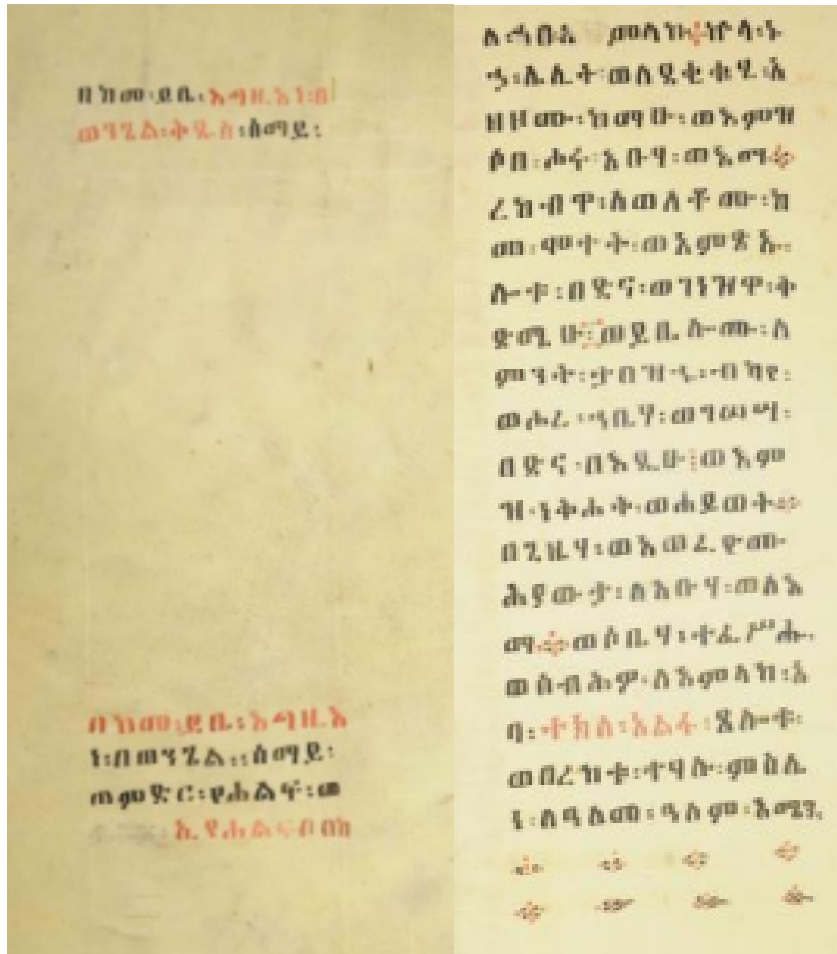 በከመ፡ይቤ፡እግዚእነ፡በ
ወንጌል፡ቅዱስ፡ሰማይ፡
በከመ፡ይቤ፡እግዚእ
ነ፡በወንጌል፡፡ሰማይ፡
ወምድር፡የሐልፍ፡ወ
ኢየሐልፍ
ምላክ፡
ኃ፡ሌሊት፡ወለደቂቁሂ፡አ
ዘዞሙ፡ከማሁ፡ወእምዝ
ሶበ፡ሖሩ፡አቡሃ፡ወእማ፨
ረከብዋ፡ለወለቶሙ፡ከ
መ፡ሞተት፡ወአምጽኡ፡
ሎቱ፡በድና፡ወገነዝዋ፡ቅ
ድሜሁ፨ወይቤሎሙ፡ለ
ምንት፡ታበዝኁ፡ብካየ፡
ወሖረ፡ኀቤሃ፡ወገሠሣ፡
በድና፡በእዴሁ፡ወእም
ዝ፡ነቅሐት፡ወሐይወት፨
በጊዜሃ፡ወአወፈዮሙ፡
ሕያውታ፡ለአቡሃ፡ወለእ
ማ፨ወሶቤሃ፡ተፈሥሑ፡
ወሰብሕዎ፡ለእምላክ፡አ
ባ፡ተክለ፡አልፋ፡ጸሎቱ፡
ወበረከቱ፡ተሃሉ፡ምስሌ
ነ፡ለዓለመ፡ዓለም፡አሜን፨